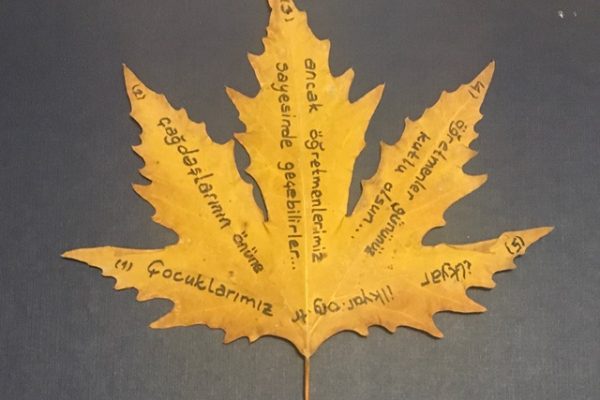 (1) Çocuklarımız
(2) çağdaşlarının önüne
(3)
ancak öğretmenlerimiz
sayesinde geçebilirler...
(4)
öğretmenler gününüz
kutlu olsun...
(5)
ilkyar
ilkyar.org.tr